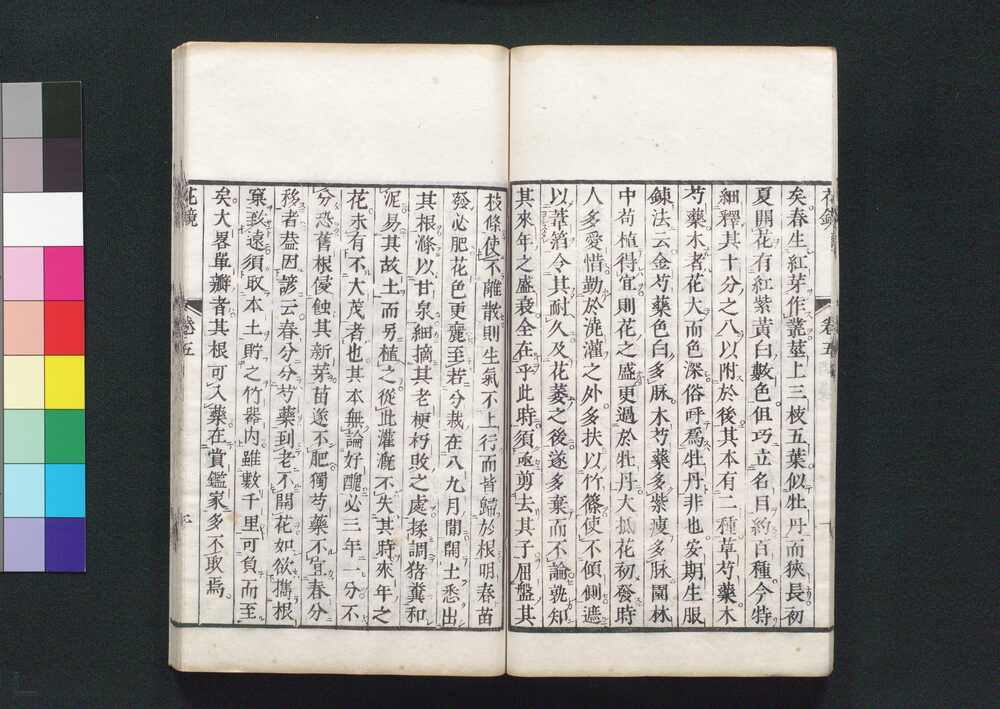 花鏡
卷五
矣春生紅芽作叢莖上三枝五葉似牡丹而狹長初
夏開花有紅紫黃白數色但巧立名目約百種今特
細釋其十分之八以附於後其本有二種草芍藥木
芍藥木者花大而色深俗呼爲牡丹非也安期生服
鍊法云金芍藥色白多脉木芍藥多紫瘦多脉圃林
中苟植得宜則花之盛更過於牡丹大抵花初發時
人多愛惜勤於澆灌之外多扶以竹篠使不傾側遮
以葦箔令其耐久及花萎之後遂多棄而不論孰知
其來年之盛衰全在乎此時須亟剪去其子屈盤其
枝條使不離散則生氣不上行而皆歸於根明春苗
發必肥花色更麗至若分栽在八九月間開土悉出
其根滌以甘泉細摘其老梗朽敗之處揉調猪糞和
泥易其故土而另植之從此灌漑不失其時來年之
花未有不大茂者也其本無論好醜必三年一分不
分恐舊根侵蝕其新芽苗遂不肥獨芍藥不宜春分
移者葢因諺云春分分芍藥到老不開花如欲攜根
棄致遠須取本土貯之竹器內雖數千里可負而至
矣大畧單瓣者其根可入藥在賞鑑家多不取焉
花鏡
卷五